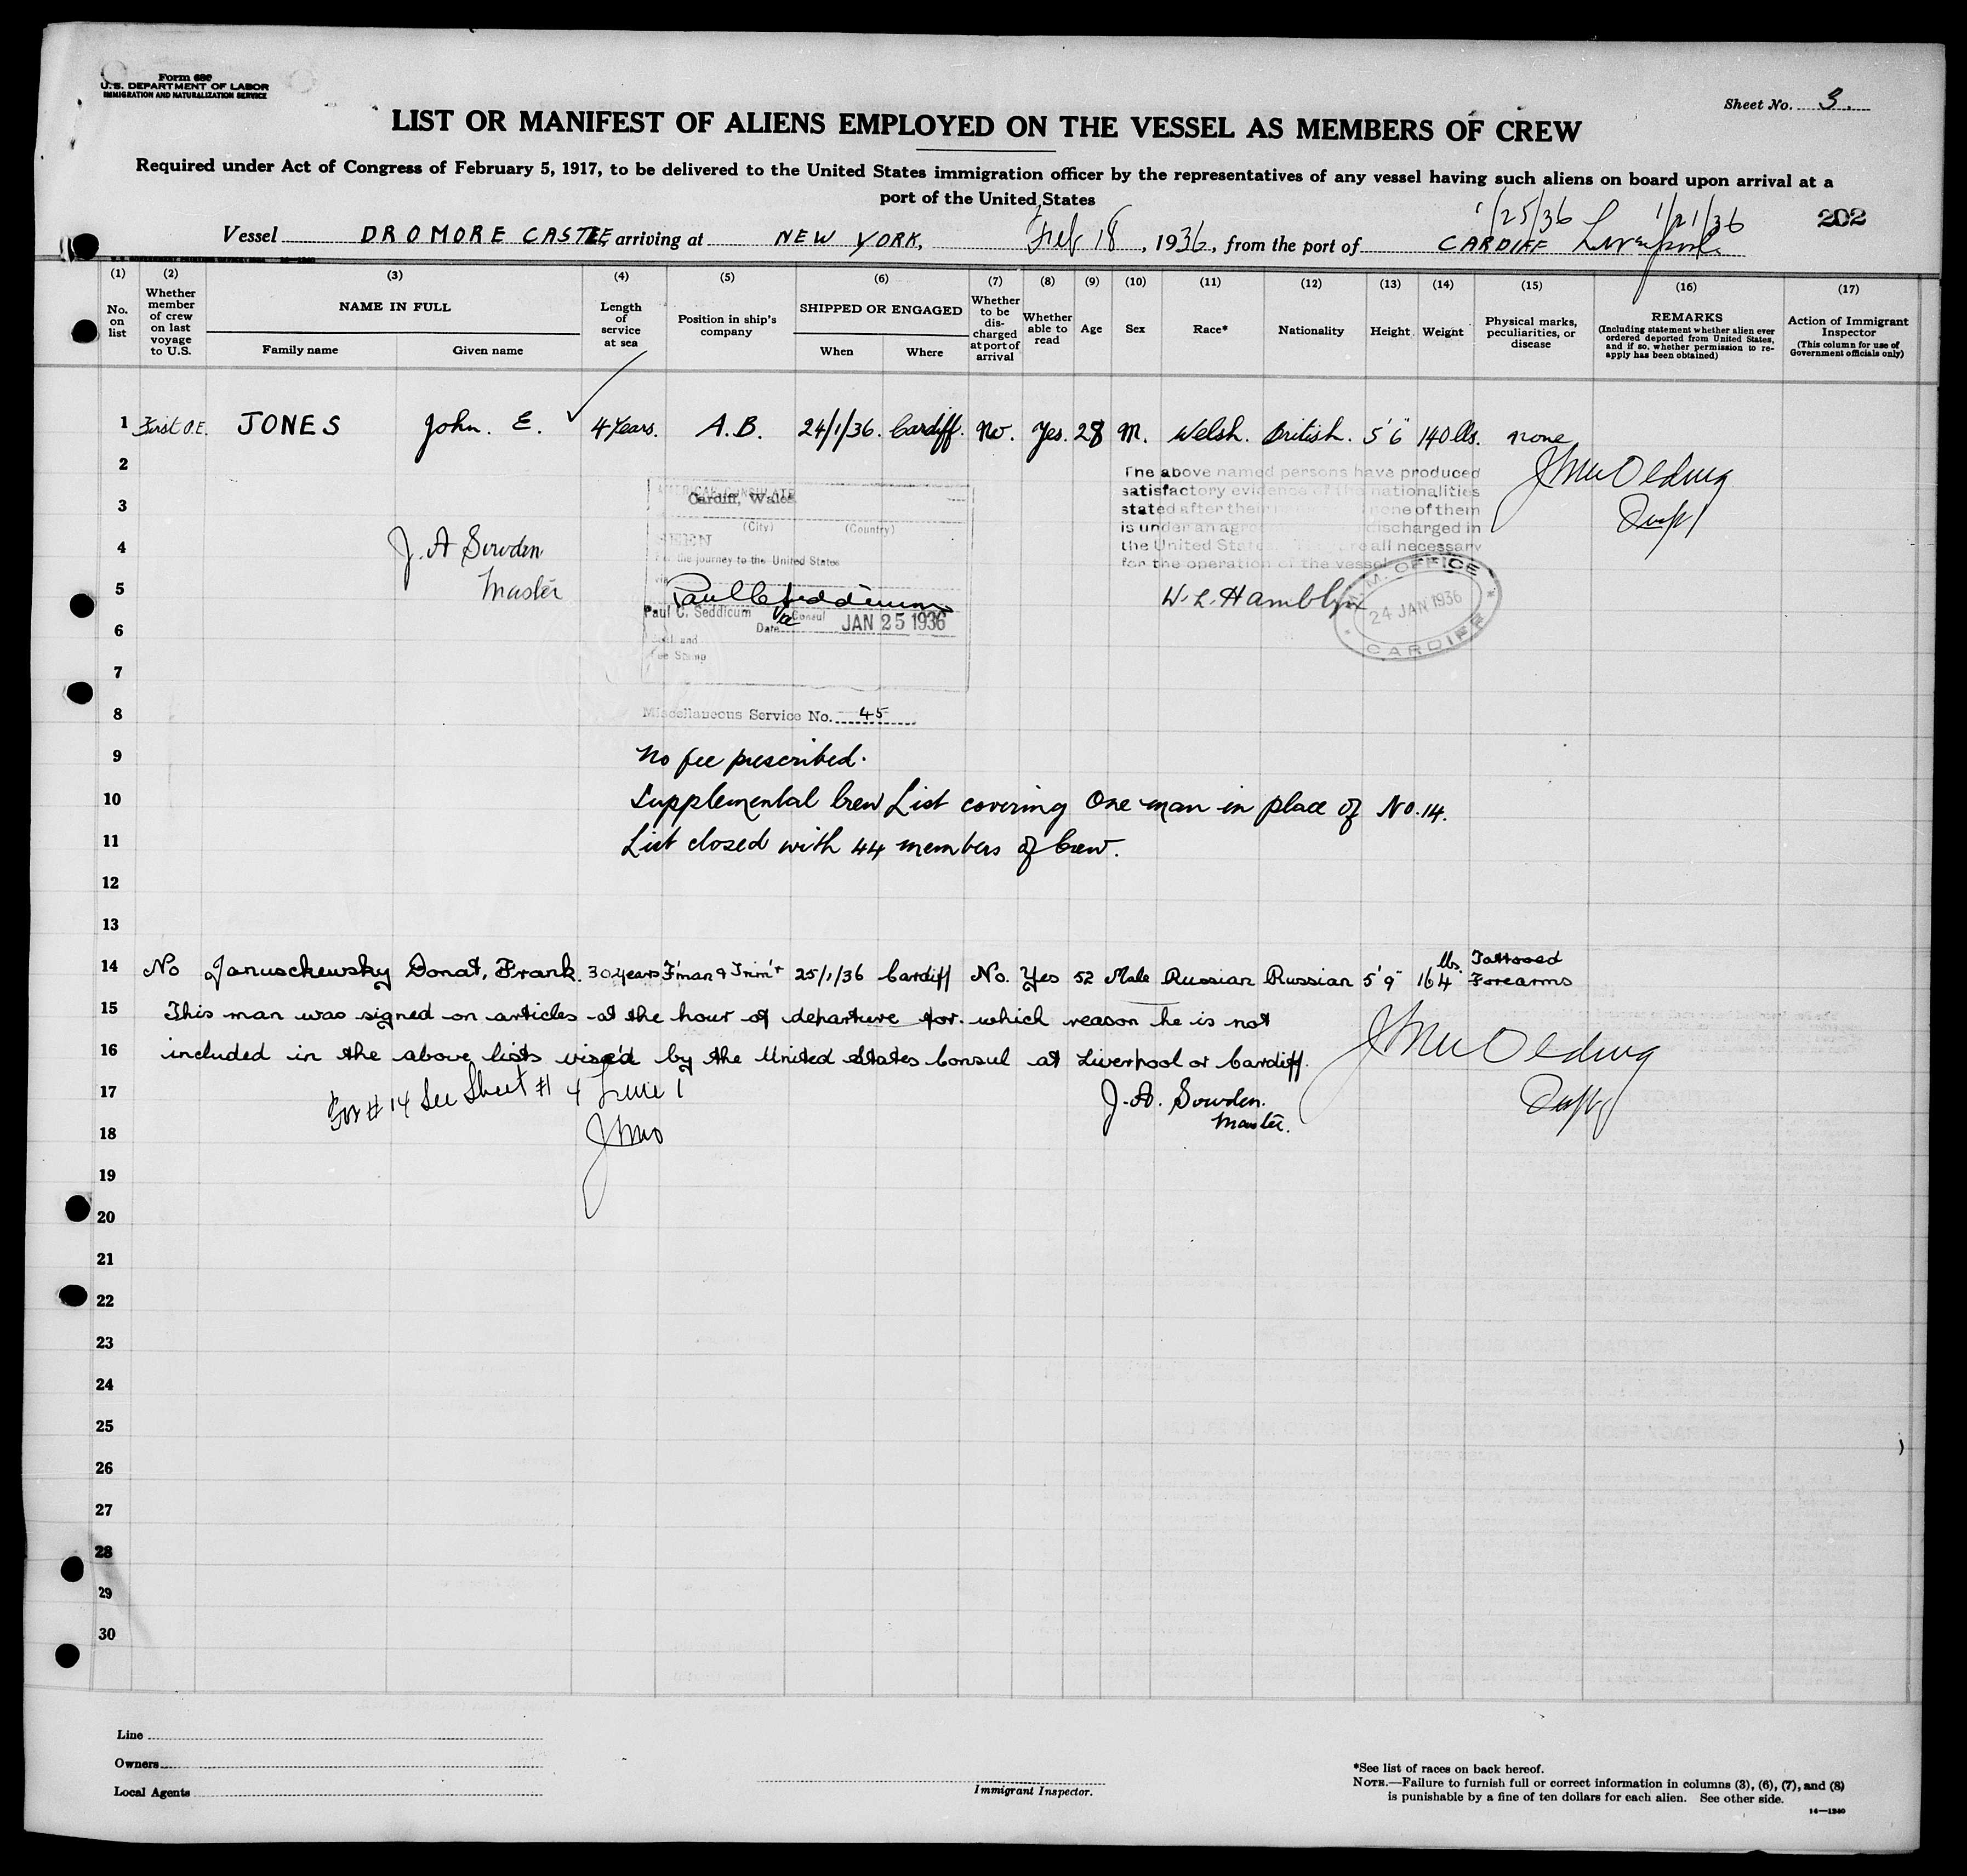 Form 680
U.S. DEPARTMENT OF LABOR
IMMIGRATION AND NATURALIZATION SERVICE
Sheet No. 3.
LIST OR MANIFEST OF ALIENS EMPLOYED ON THE VESSEL AS MEMBERS OF CREW
Required under Act of Congress of February 5, 1917, to be delivered to the United States immigration officer by the representatives of any vessel having such aliens on board upon arrival at a
port of the United States
1/25/36 1/21/36 202
Vessel DROMORE CASTLE, arriving at NEW YORK, Feb 18, 1936, from the port of CARDIFF Liverpool.
(1) (2) (3) (4) (5) (6) (7) (8) (9) (10) (11) (12) (13) (14) (15) (16) (17)
No. on list
Whether member of crew on last voyage to U.S.
NAME IN FULL
Family name Given name
Length of service at sea
Position in ship's company
SHIPPED OR ENGAGED
When Where
Whether to be discharged at port of arrival
Whether able to read
Age
Sex
Race*
Nationality
Height
Weight
Physical marks, peculiarities, or disease
REMARKS
(Including statement whether alien ever ordered deported from United States, and if so, whether permission to reapply has been obtained)
Action of Immigrant Inspector
(This column for use of Government officials only)
1 First O.E. JONES John. E. 4 Years. A.B. 24/1/36. Cardiff. No. Yes. 28 M. Welsh. British. 5'6" 140 lbs. none
2
3
4
5
6
7
8
The above named persons have produced
satisfactory evidence of the nationalities
stated after their none of them
is under an agre discharged in
the United States. all necessary
for the operation of the vessel
W. L. Hamblyn
M.M. OFFICE
24 JAN 1936
CARDIFF
AMERICAN CONSULATE
Cardiff, Wales
(City) (Country)
For the journey to the United States
via
Paul C. Seddicum
Paul C. Seddicum Vice Consul
Date JAN 25 1936
Seal and
Fee Stamp
J. A Sowden
Master
Miscellaneous Service No. 45
9 No fee prescribed.
10 Supplemental Crew List covering One man in place of No. 14.
11 List closed with 44 members of Crew.
12
13
14 No Januschewsky Donat, Frank. 30 years F'man & Trim'r 25/1/36 Cardiff No. Yes 52 Male Russian Russian 5'9" 164 lbs. Tattooed Forearms
15 This man was signed on articles at the hour of departure for which reason he is not
16 included in the above lists visé'd by the United States Consul at Liverpool or Cardiff.
17 For #14 See Sheet #1 4 Line 1
J. A. Sowden.
Master.
18
19
20
21
22
23
24
25
26
27
28
29
30
Line
Owners
Local Agents
Immigrant Inspector.
*See list of races on back hereof.
NOTE.—Failure to furnish full or correct information in columns (3), (6), (7), and (8)
is punishable by a fine of ten dollars for each alien. See other side.
14—1240